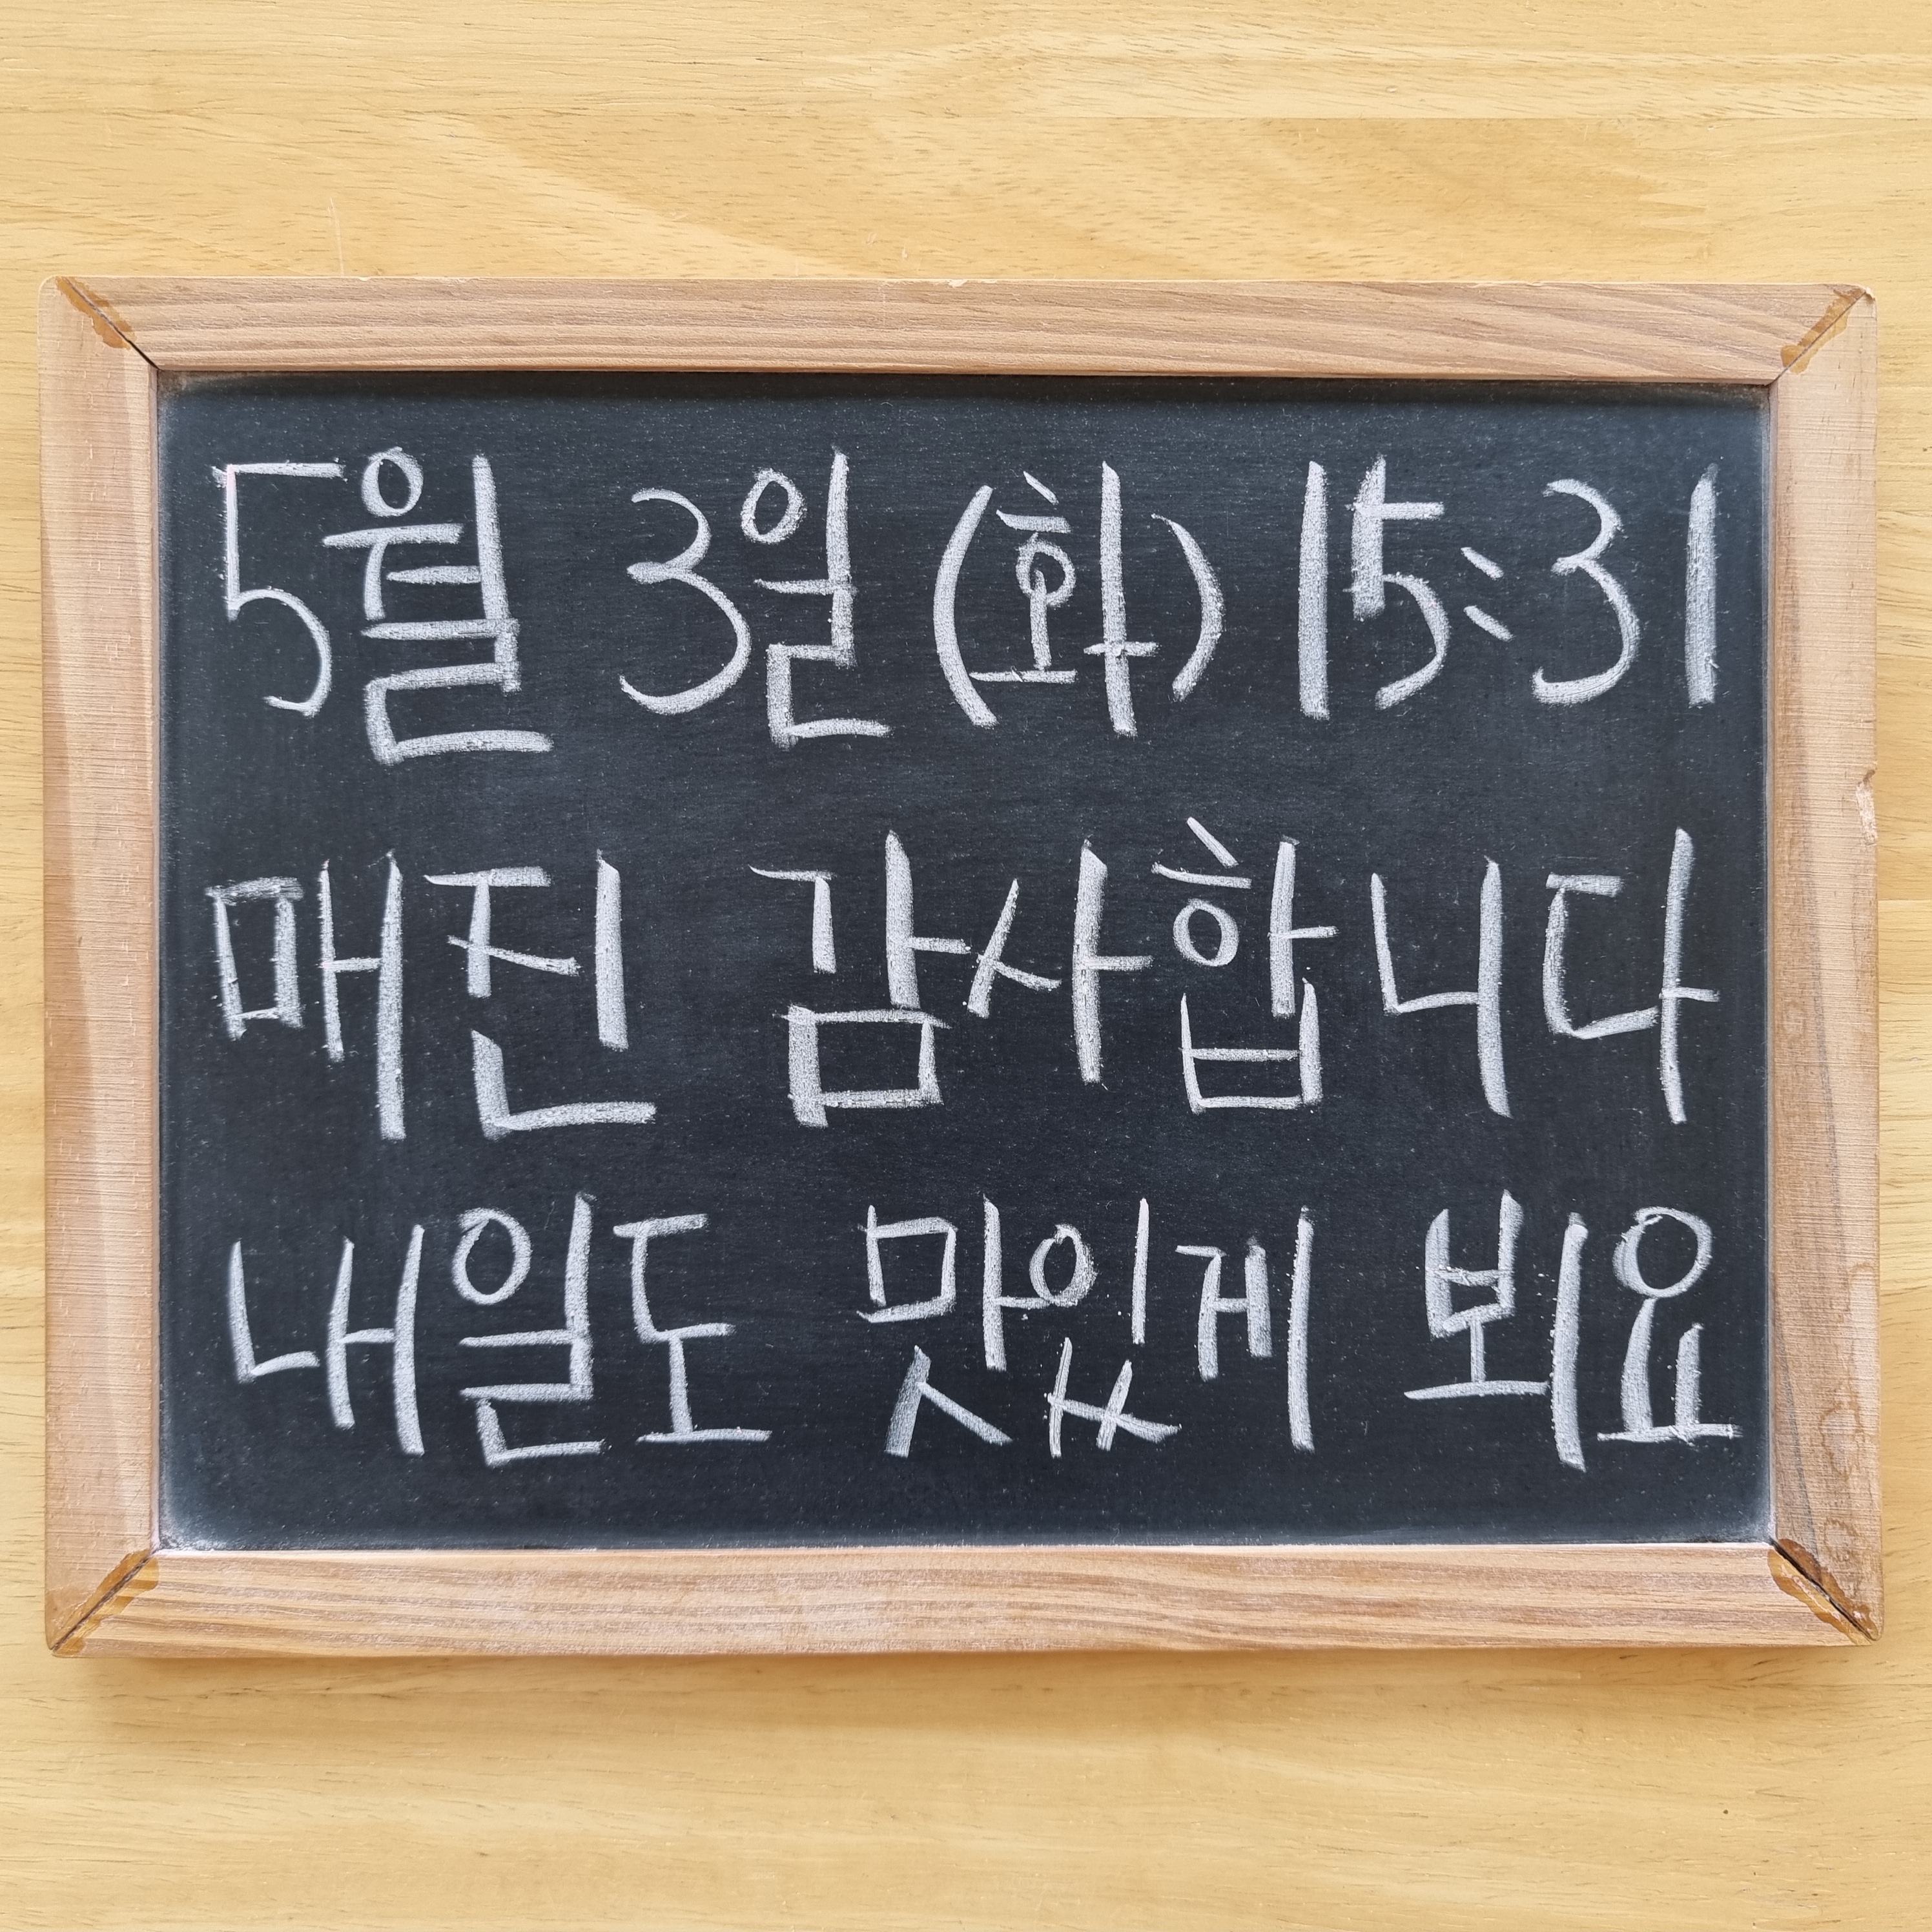 5월 3일 (화) 15:31
매진 감사합니다
내일도 맛있게 뵈요